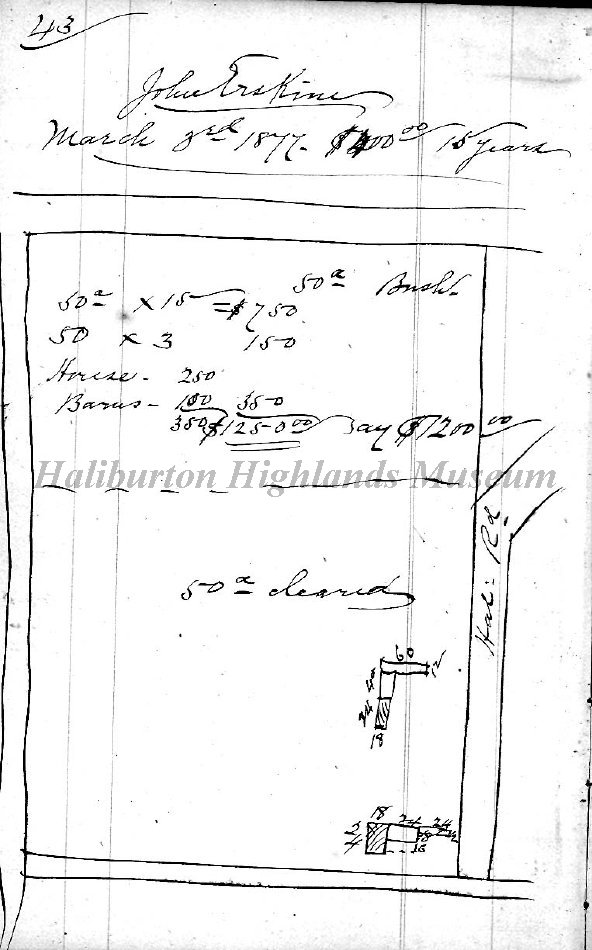 43
John Erskine
March 3rd 1877. $400 00 15 years
50 a Bush
50 a x 15 = $750
50 x 3 150
House - 250
Barns - 100 350
350 $1250.00 Say $1200 00
Haliburton Highlands Museum
50 a cleared
Hal: Rd
60
18
18
24
24
24
18